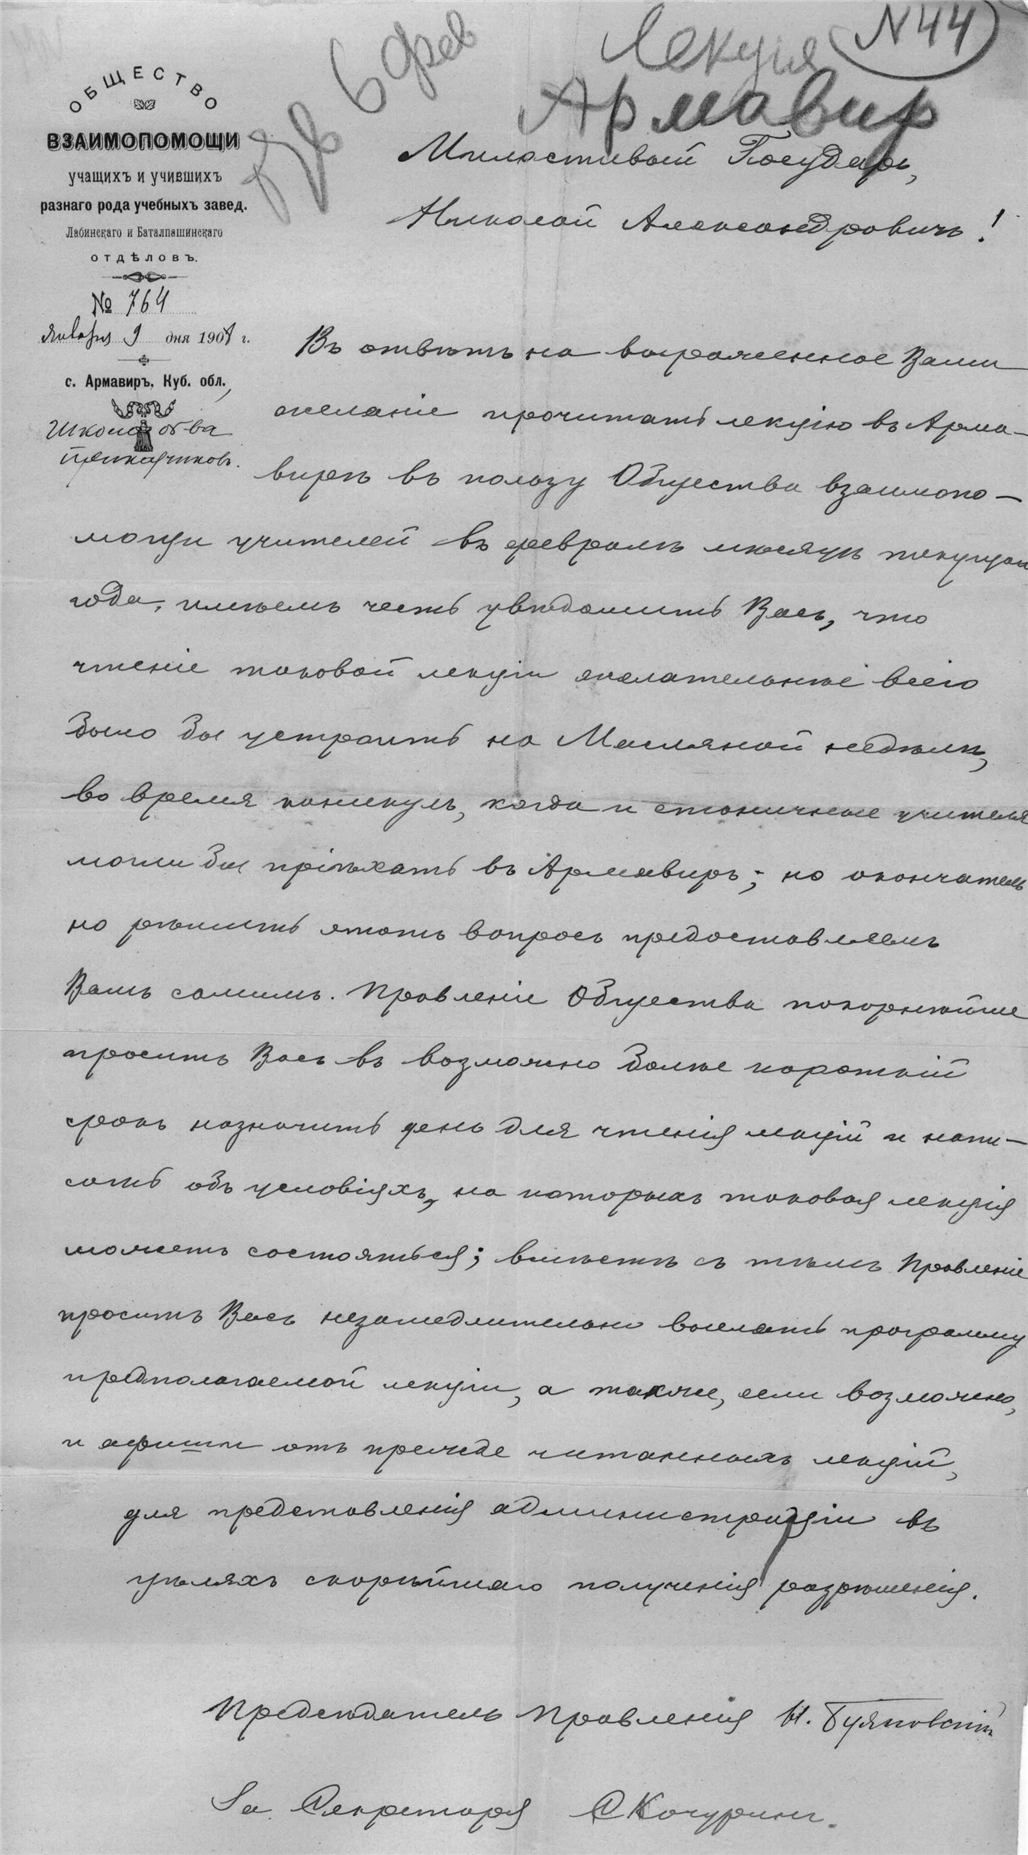 Лекція
N 44
Армавир
6 фев
ОБЩЕСТВО
ВЗАИМОПОМОЩИ
учащихъ и учившихъ
разнаго рода учебныхъ завед.
Лабинскаго и Баталпашинскаго
ОТДѢЛОВЪ.
№ 764
Января 9 дня 1908 г.
с. Армавиръ, Куб. обл.,
Школа об-ва
приказчиковъ.
Милостивый Государь,
Николай Александровичъ!
Въ отвѣтъ на выраженное Вами
желаніе прочитать лекцію въ Арма-
вирѣ въ пользу Общества взаимопо-
мощи учителей въ февралѣ мѣсяцѣ текущаго
года, имѣемъ честь увѣдомить Васъ, что
чтеніе таковой лекціи желательнѣе всего
было бы устроить на Масляной недѣлѣ,
во время каникулъ, когда и станичные учителя
могли бы пріѣхать въ Армавиръ; но окончатель
но рѣшить этотъ вопросъ предоставляемъ
Вамъ самимъ. Правленіе Общества покорнѣйше
проситъ Васъ въ возможно болѣе короткій
срокъ назначить день для чтенія лекцій и напи-
сать объ условіяхъ, на которыхъ таковая лекція
можетъ состояться; вмѣстѣ съ тѣмъ Правленіе
проситъ Васъ незамедлительно выслать программу
предполагаемой лекціи, а также, если возможно,
и афиши отъ прежде читанныхъ лекцій,
для представленія администраціи въ
цѣляхъ скорѣйшаго полученія разрѣшенія.
Предсѣдатель Правленія Н.
За Секретаря